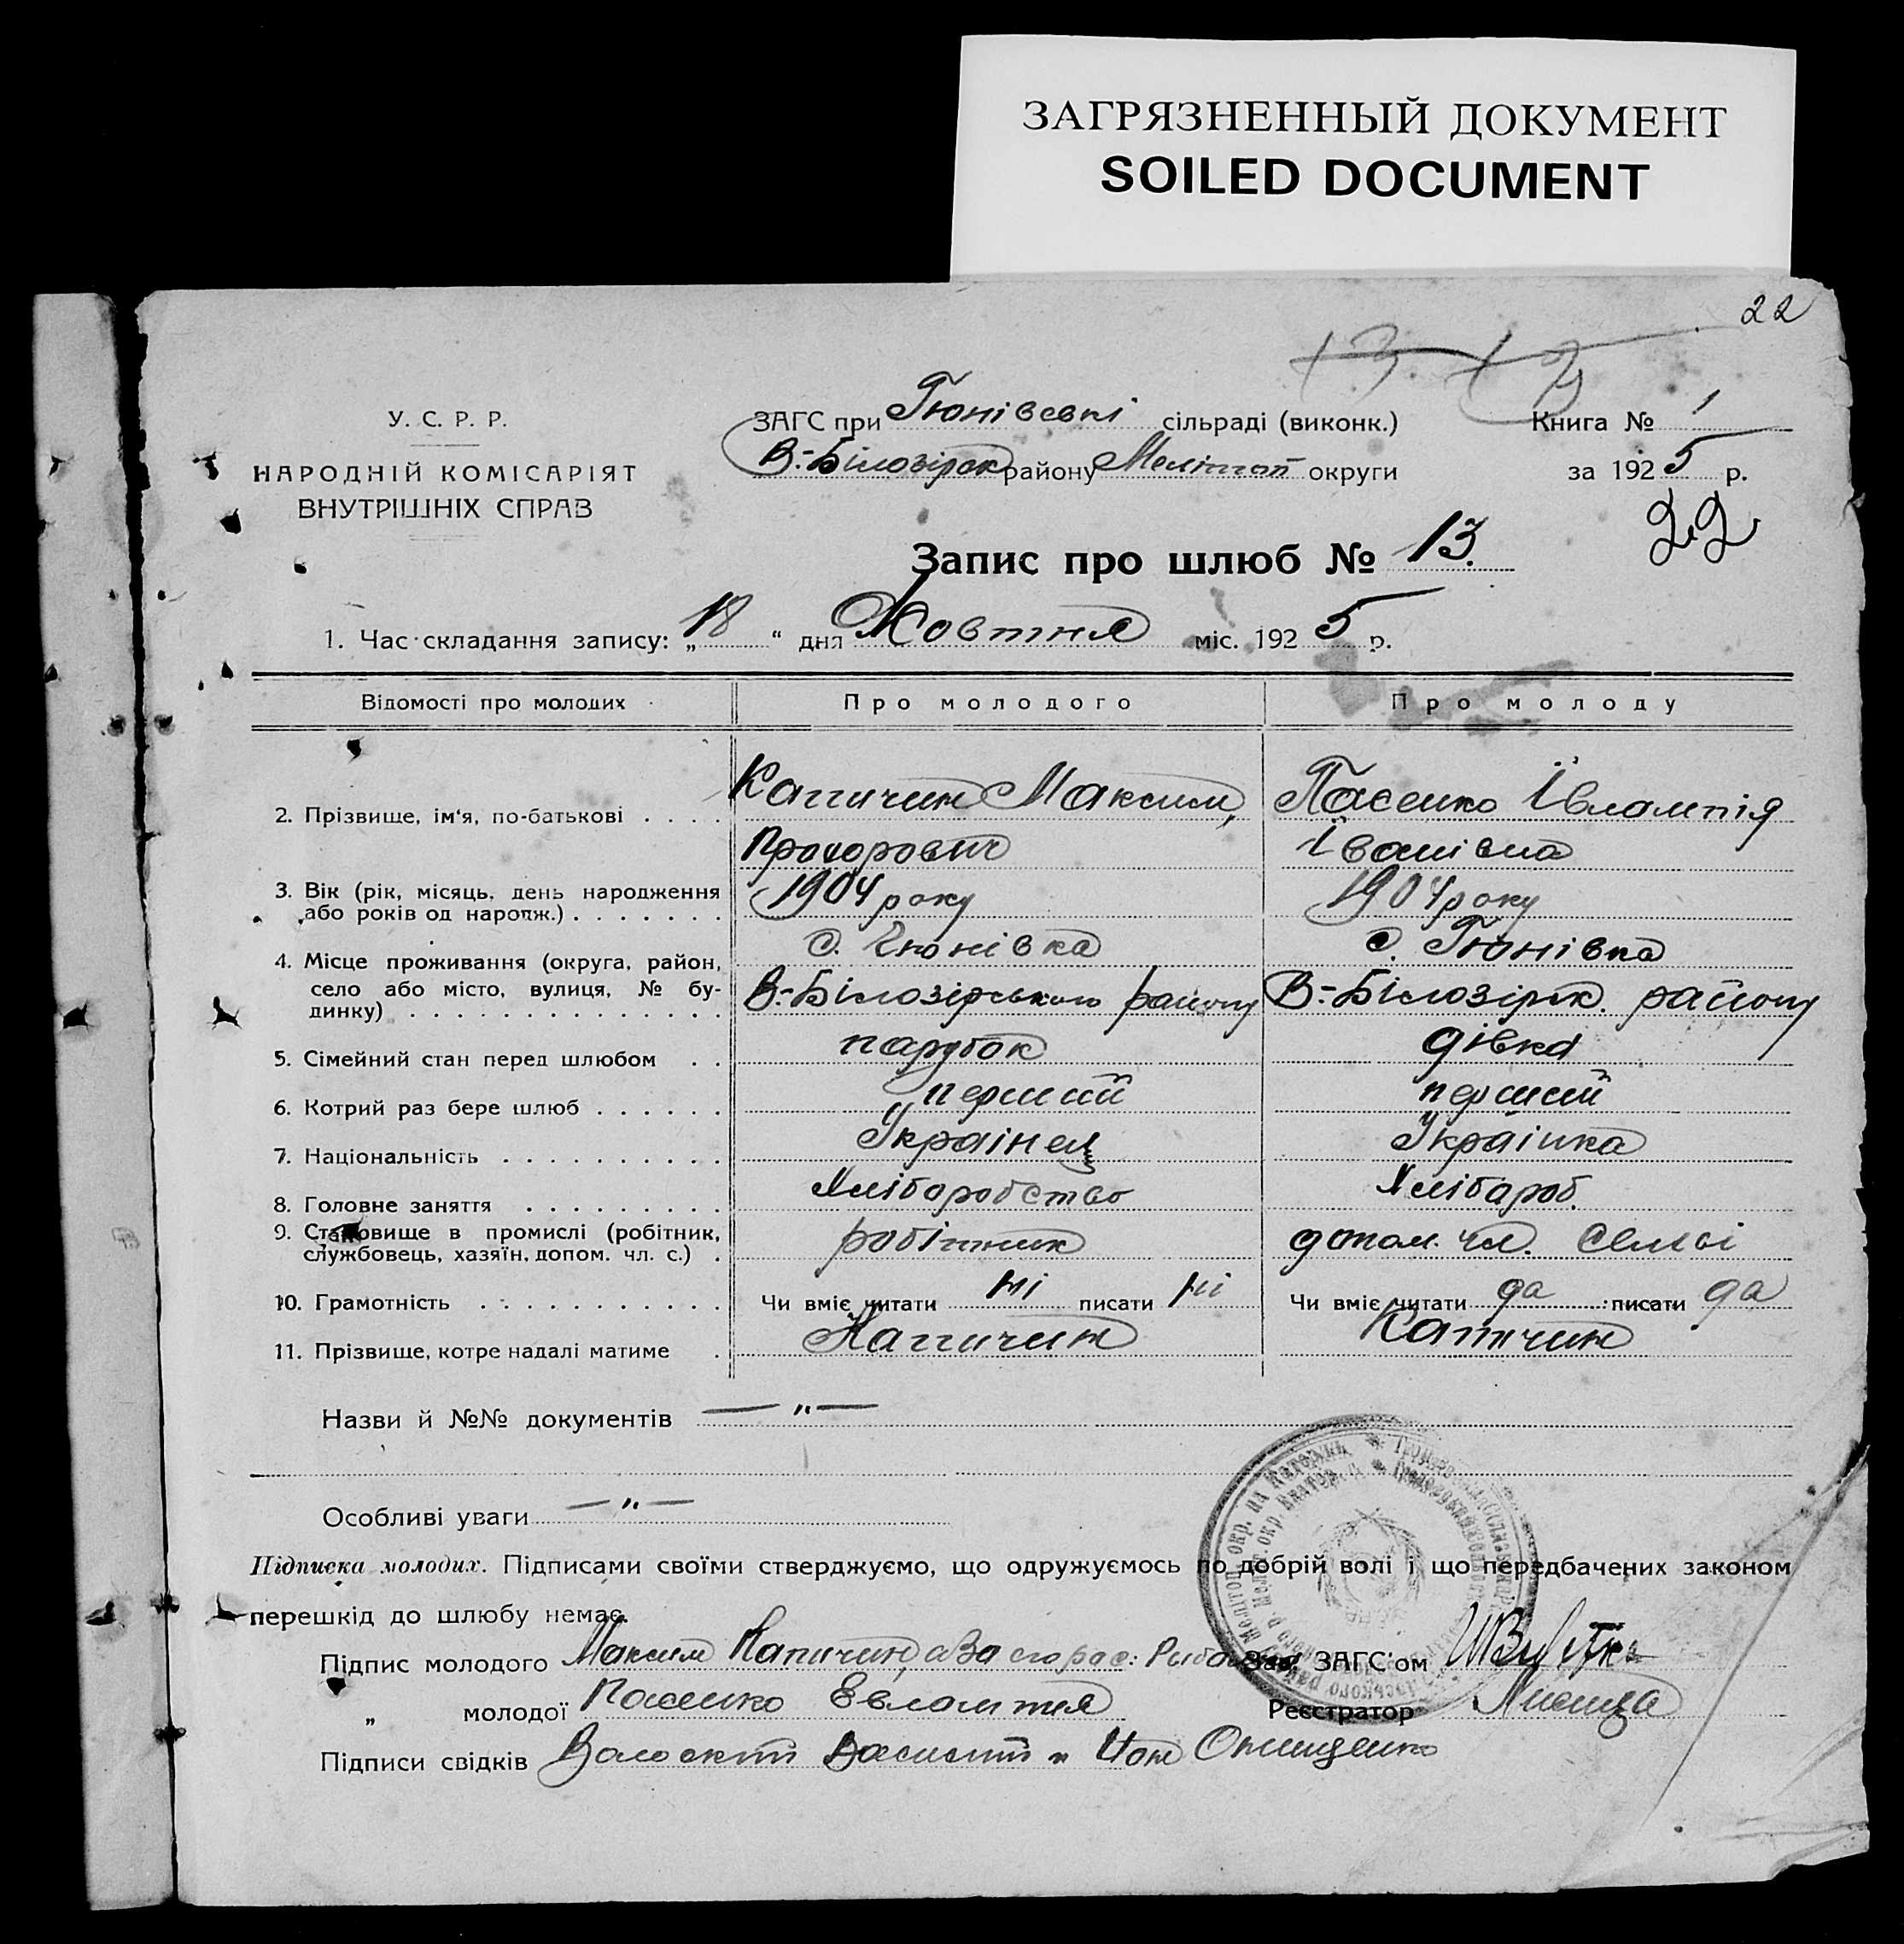 ЗАГРЯЗНЕННЫЙ ДОКУМЕНТ
SOILED DOCUMENT
22
13 13
У. С. Р. Р.
НАРОДНІЙ КОМІСАРІЯТ
ВНУТРІШНІХ СПРАВ
ЗАГС при Гюнівські сільраді (виконк.)
В.-Білозірск району Мелітоп округи
Книга № 1
за 1925 р.
22
Запис про шлюб № 13.
1. Час складання запису: „18“ дня Жовтня міс. 1925 р.
Відомості про молодих Про молодого Про молоду
2. Прізвище, ім‘я, по-батькові . . . . Капичин Максим, Пасенко Івлампія
Прохорович Іванівна
3. Вік (рік, місяць, день народження
або років од народж.) . . . . . . . 1904 року 1904 року
с. Гюнівка с. Гюнівка
4. Місце проживання (округа, район,
село або місто, вулиця, № бу-
динку) . . . . . . . . . . . . . . В.-Білозірського району В.-Білозірск. району
5. Сімейний стан перед шлюбом . . парубок дівка
6. Котрий раз бере шлюб . . . . . . перший перший
7. Національність . . . . . . . . . . Українец Українка
8. Головне заняття . . . . . . . . . Хліборобство Хлібороб.
9. Становище в промислі (робітник,
службовець, хазяїн, допом. чл. с.) . робітник допом. чл. семьі
10. Грамотність . . . . . . . . . . . Чи вміє читати ні писати ні Чи вміє читати да писати да
11. Прізвище, котре надалі матиме . Капичин Капичин
Назви й №№ документів — „ —
Особливі уваги — „ —
Підписка молодих. Підписами своїми стверджуємо, що одружуємось по добрій волі і що передбачених законом
перешкід до шлюбу немає.
Підпис молодого Максим Капичин, а за его рас: Зав. ЗАГС‘ом
„ молодої Пасенко Евлампия Реєстратор Лисица
Підписи свідків Онищенко